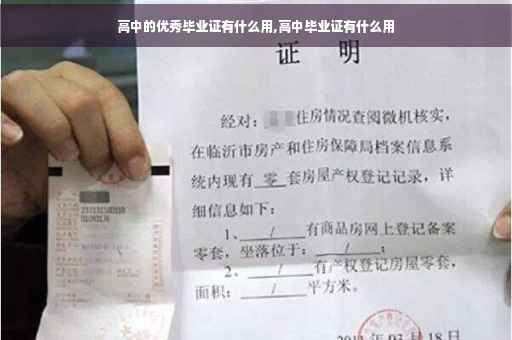 高中的优秀毕业证有什么用,高中毕业证有什么用
证 明
经对：住房情况查阅微机核实，
在临沂市房产和住房保障局档案信息系
统内现有 零 套房屋产权登记记录，详
细信息如下：
1、 / 有商品房网上登记备案
零套，坐落位于： / ；
2、 / 有产权登记房屋零套，
面积： / 平方米。
03月18日